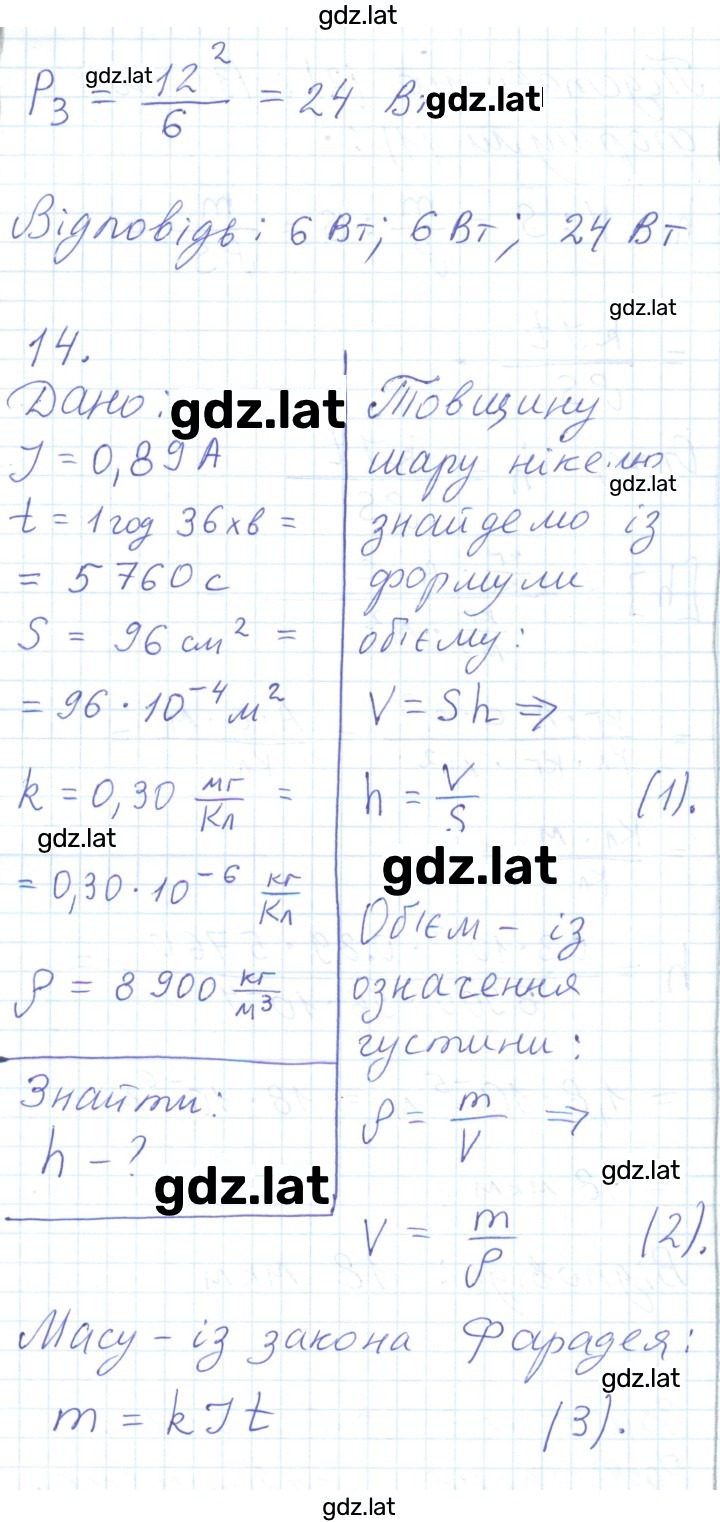 gdz.lat
P₃ = 12²/6 = 24 Вт
gdz.lat
gdz.lat
Відповідь: 6 Вт; 6 Вт; 24 Вт
gdz.lat
14.
Дано:
gdz.lat
J = 0,89 А
t = 1 год 36 хв =
= 5 760 с
S = 96 см² =
= 96 · 10⁻⁴ м²
k = 0,30 мг/Кл =
gdz.lat
= 0,30 · 10⁻⁶ кг/Кл
ρ = 8 900 кг/м³
Знайти:
h – ?
gdz.lat
Товщину
шару нікелю
gdz.lat
знайдемо із
формули
об'єму:
V = Sh ⇒
h = V/S (1).
gdz.lat
Об'єм – із
означення
густини:
ρ = m/V ⇒
gdz.lat
V = m/ρ (2).
Масу – із закона Фарадея:
gdz.lat
m = kJt (3).
gdz.lat